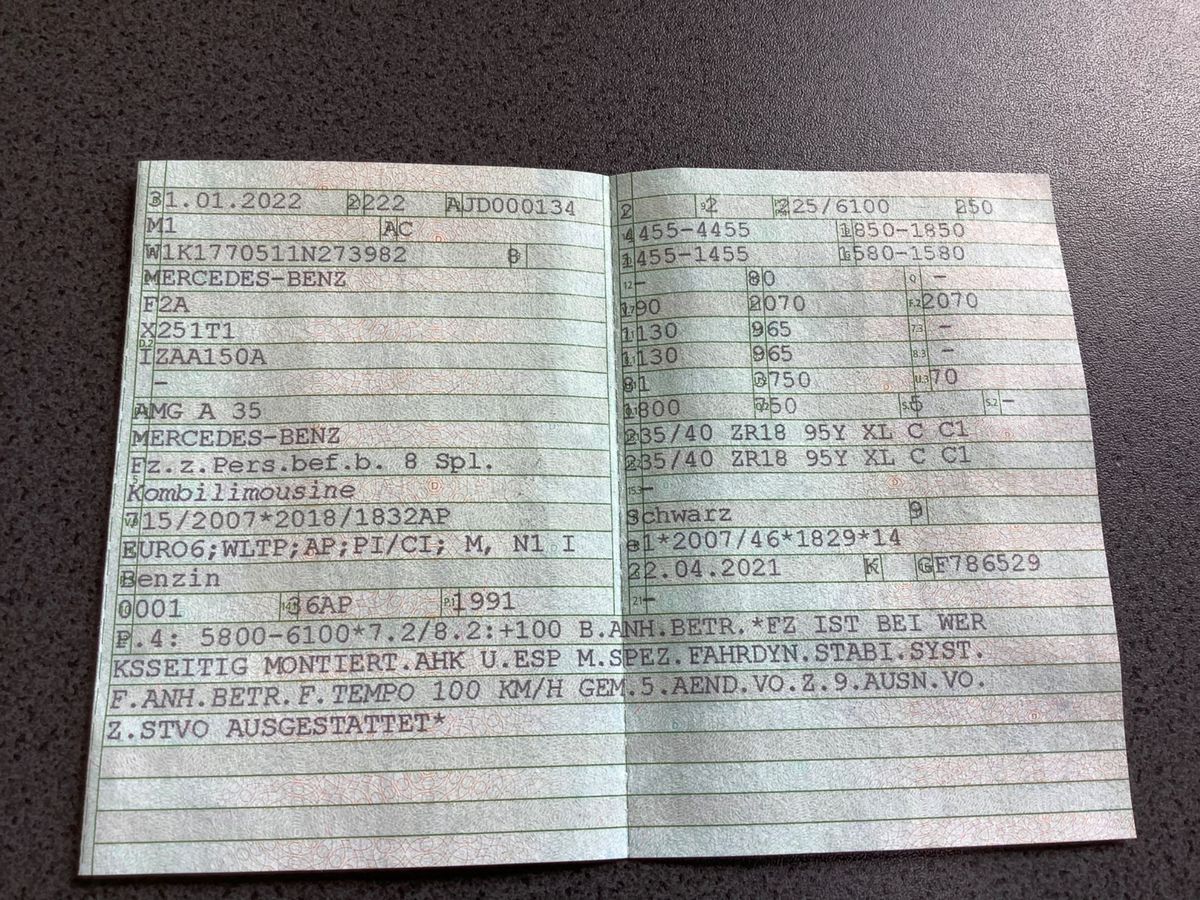 31.01.2022 2222 AJD000134
M1 AC
W1K1770511N273982 8
MERCEDES-BENZ
F2A
X251T1
D.2
IZAA150A
–
AMG A 35
MERCEDES-BENZ
Fz.z.Pers.bef.b. 8 Spl.
Kombilimousine
715/2007*2018/1832AP
EURO6;WLTP;AP;PI/CI; M, N1 I
Benzin
0001 36AP 1991
2 2 225/6100 250
4455-4455 1850-1850
1455-1455 1580-1580
12 – 80 Q –
190 2070 F.2 2070
1130 965 7.3 –
1130 965 8.3 –
81 3750 U.3 70
1800 750 5 S.2 –
235/40 ZR18 95Y XL C C1
235/40 ZR18 95Y XL C C1
15.3 –
schwarz 9
e1*2007/46*1829*14
22.04.2021 K GF786529
21 –
P.4: 5800-6100*7.2/8.2:+100 B.ANH.BETR.*FZ IST BEI WER
KSSEITIG MONTIERT.AHK U.ESP M.SPEZ.FAHRDYN.STABI.SYST.
F.ANH.BETR.F.TEMPO 100 KM/H GEM.5.AEND.VO.Z.9.AUSN.VO.
Z.STVO AUSGESTATTET*